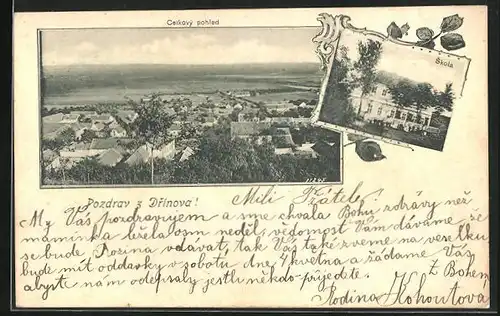 Celkový pohled
Škola
Pozdrav z Dřínova!
Milí Přátelé!
My Vás pozdravujem a sme chvala Bohu zdrávy než
maminka
neděl, vědomost Vám dáváme že
se bude Rozina vdávat, tak Vás také zveme na veselku
bude mít oddavky v sobotu dne 4 května a žádáme Vás
abyste nám odepsaly jestli někdo přijedete. Z Bohem
Rodina Kohoutova